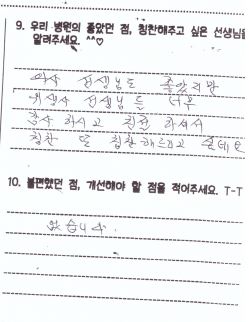 9. 우리 병원의 좋았던 점, 칭찬해주고 싶은 선생님을
알려주세요. ^^♡
의사 선생님도 좋았지만
위생사 선생님들 너무
감사 하시고 친절 하셔서
칭찬 또 칭찬 해드리고 싶네요
10. 불편했던 점, 개선해야 할 점을 적어주세요. T-T
없습니다.